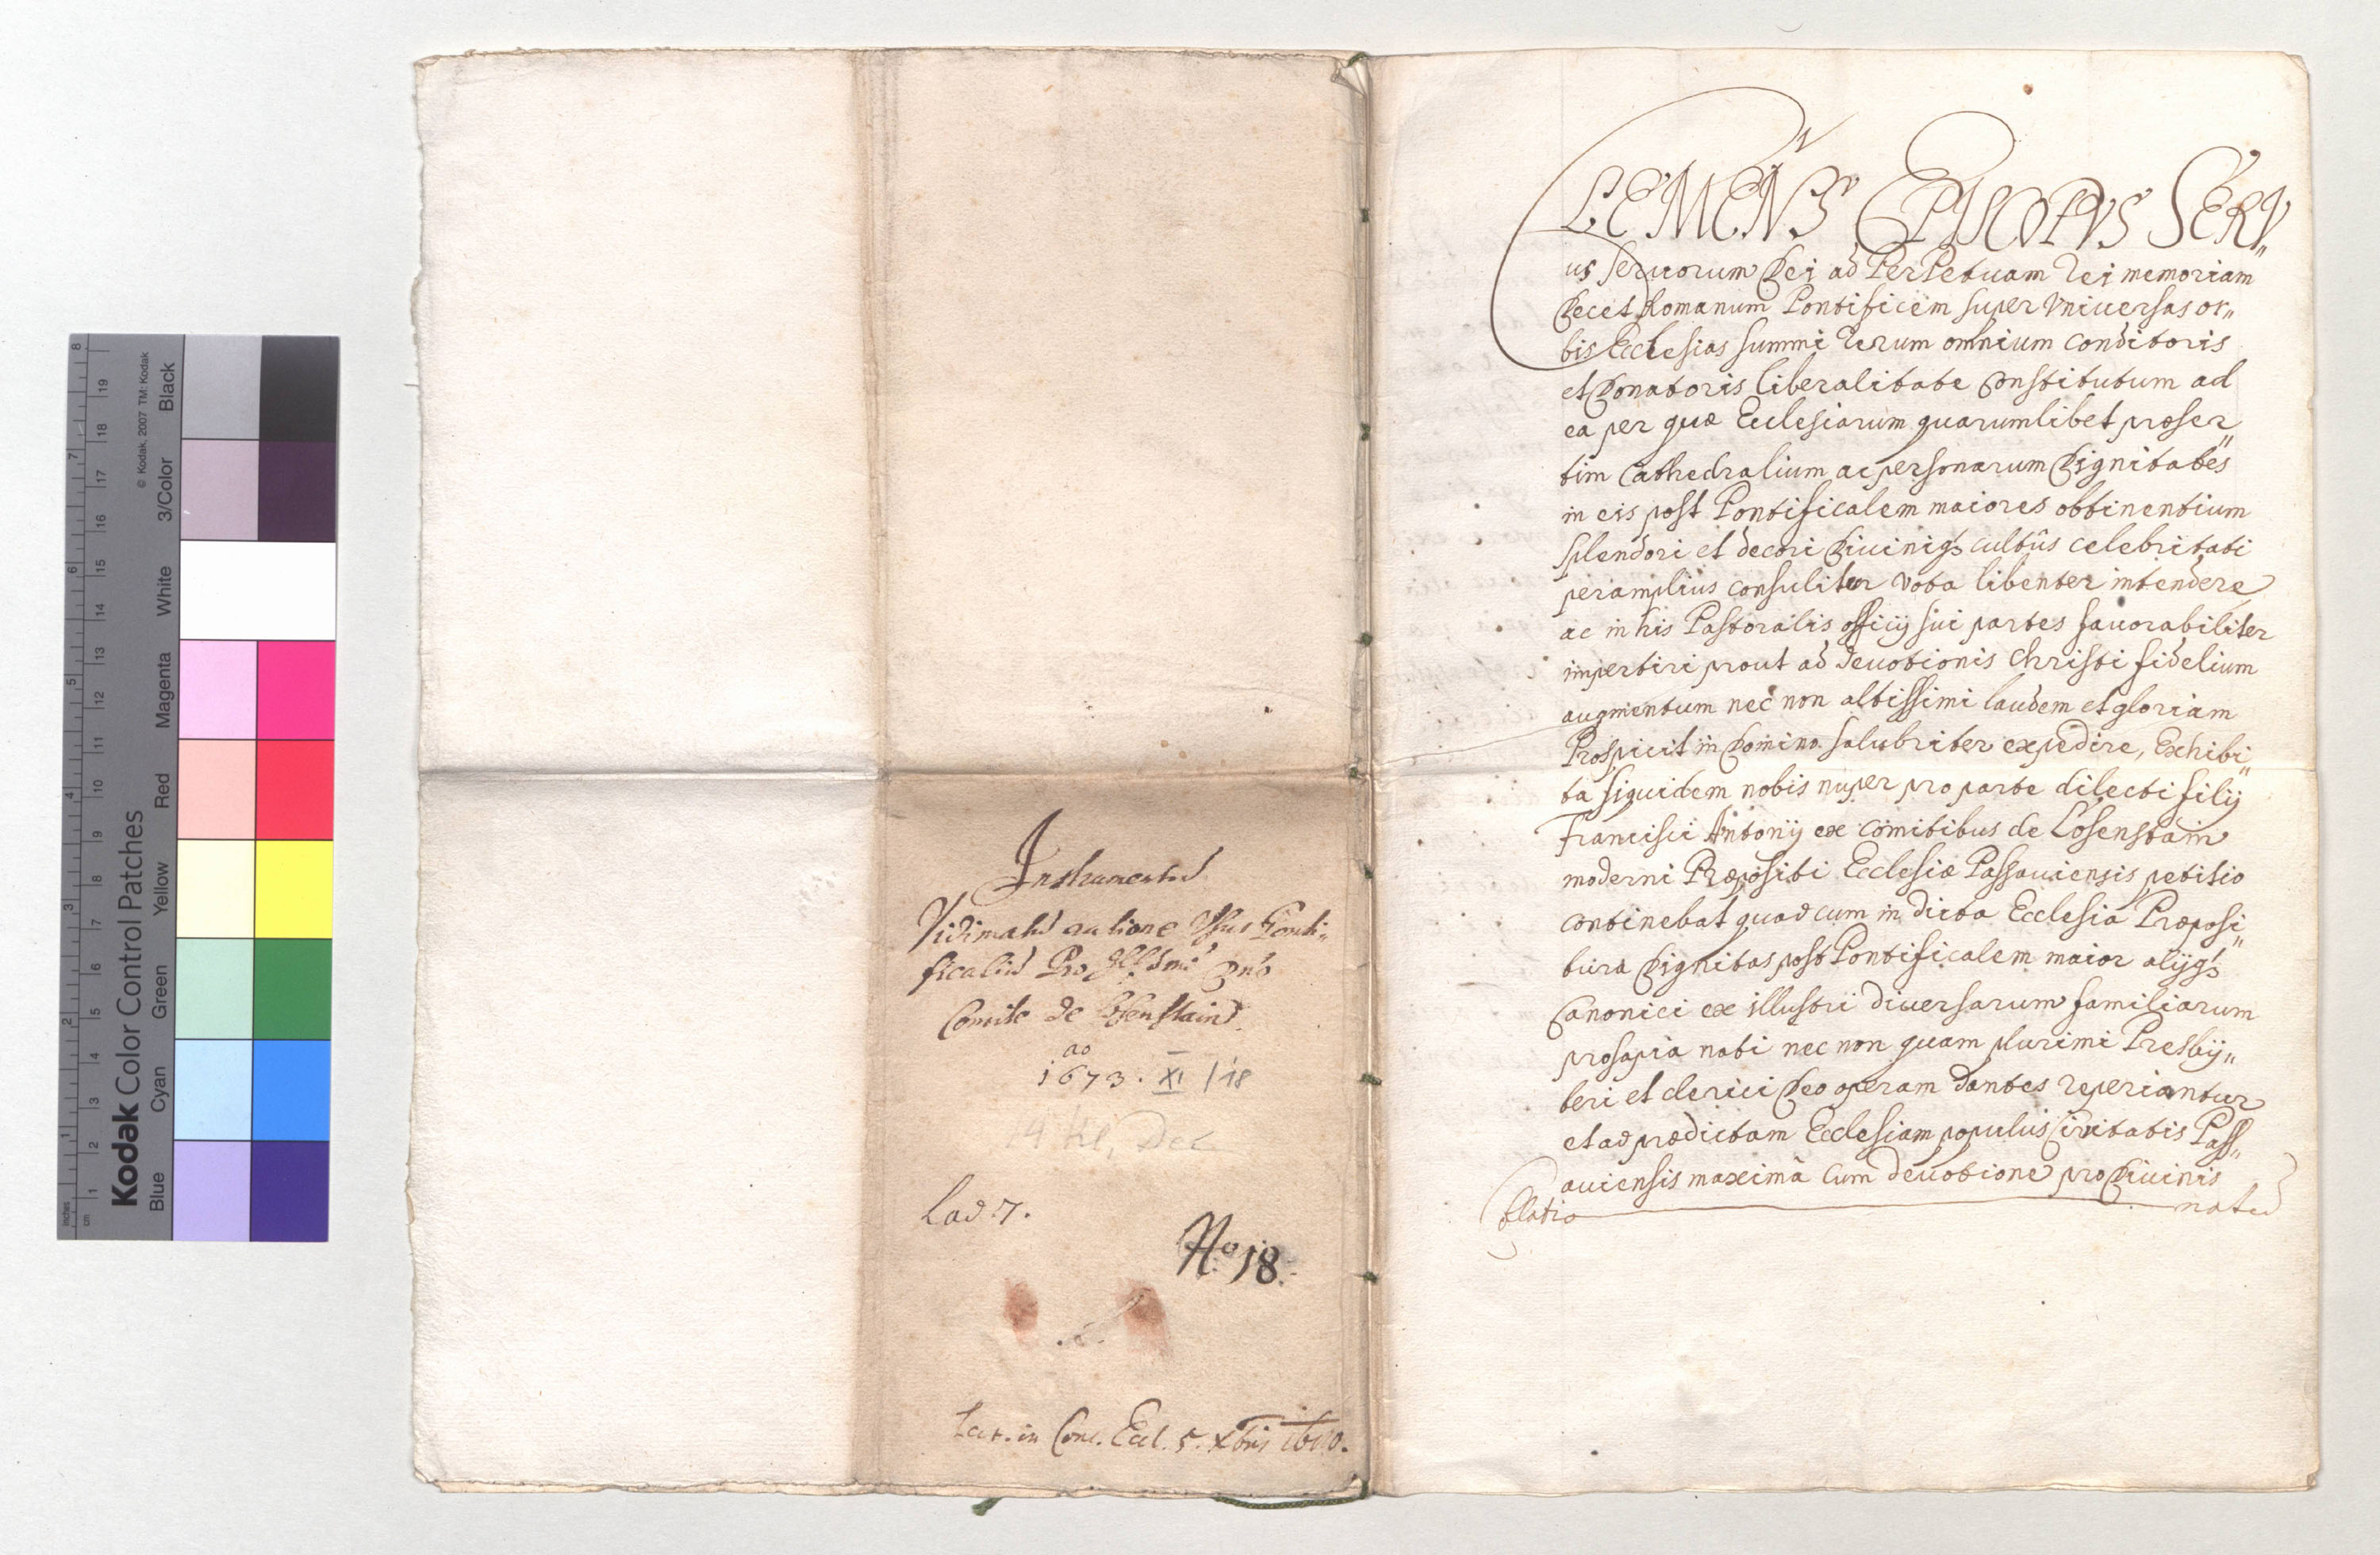 Kodak Color Control Patches
© Kodak, 2007 TM: Kodak
Blue Cyan Green Yellow Red Magenta White 3/Color Black
inches 1 2 3 4 5 6 7 8
cm 1 2 3 4 5 6 7 8 9 10 11 12 13 14 15 16 17 18 19
Instrumentum
Vidimatum ratione Usus Ponti„
ficalium Pro
Comite de Losenstain.
ao
1673. XI / 18
14 kl. Dec
Lad 7.
No 18.
Lect. in Conc. Eccl. 5. Xbris
CLEMENS EPISCOPVS SERV„
us servorum Dei ad PerPetuam rei memoriam
Decet Romanum Pontificem super Vniuersas or„
bis Ecclesias summi rerum omnium conditoris
et Donatoris liberalitate Constitutum ad
ea per quæ Ecclesiarum quarumlibet præser„
tim Cathedralium ac personarum Dignitates
in eis post Pontificalem maiores obtinentium
splendori et decori Diuiniq3 cultûs celebritati
peramplius consulitur vota libenter intendere
ac in his Pastoralis officij sui partes fauorabiliter
impertiri prout ad deuotionis Christi fidelium
augmentum nec non altissimi laudem et gloriam
Prospicit in Domino salubriter expedire, Exhibi„
ta siquidem nobis nuper pro parte dilecti filij
Francisci Antonij ex Comitibus de Losenstain
moderni Præpositi Ecclesiæ Passauiensis petitio
continebat quod cum in dicta Ecclesia Præposi„
tura Dignitas post Pontificalem maior alijq3
Canonici ex illustri diuersarum familiarum
prosapia nati nec non quam plurimi Presbij„
teri et clerici Deo operam dantes reperiantur
et ad prædictam Ecclesiam populus Ciuitatis Pass„
auiensis maximâ cum deuotione pro Diuinis